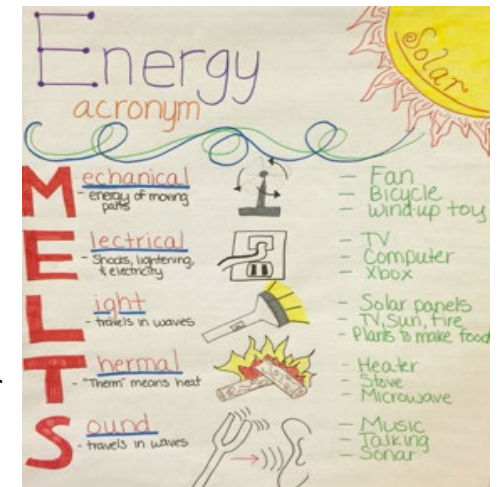 Energy
Solar
acronym
Mechanical
- energy of moving
parts
- Fan
- Bicycle
- wind-up toy
Electrical
- Shocks, lightening,
& electricity
- TV
- Computer
- Xbox
Light
- travels in waves
- Solar panels
- TV, Sun, Fire
- Plants to make food
Thermal
- "Therm" means heat
- Heater
- Stove
- Microwave
Sound
- travels in waves
- Music
- Talking
- Sonar